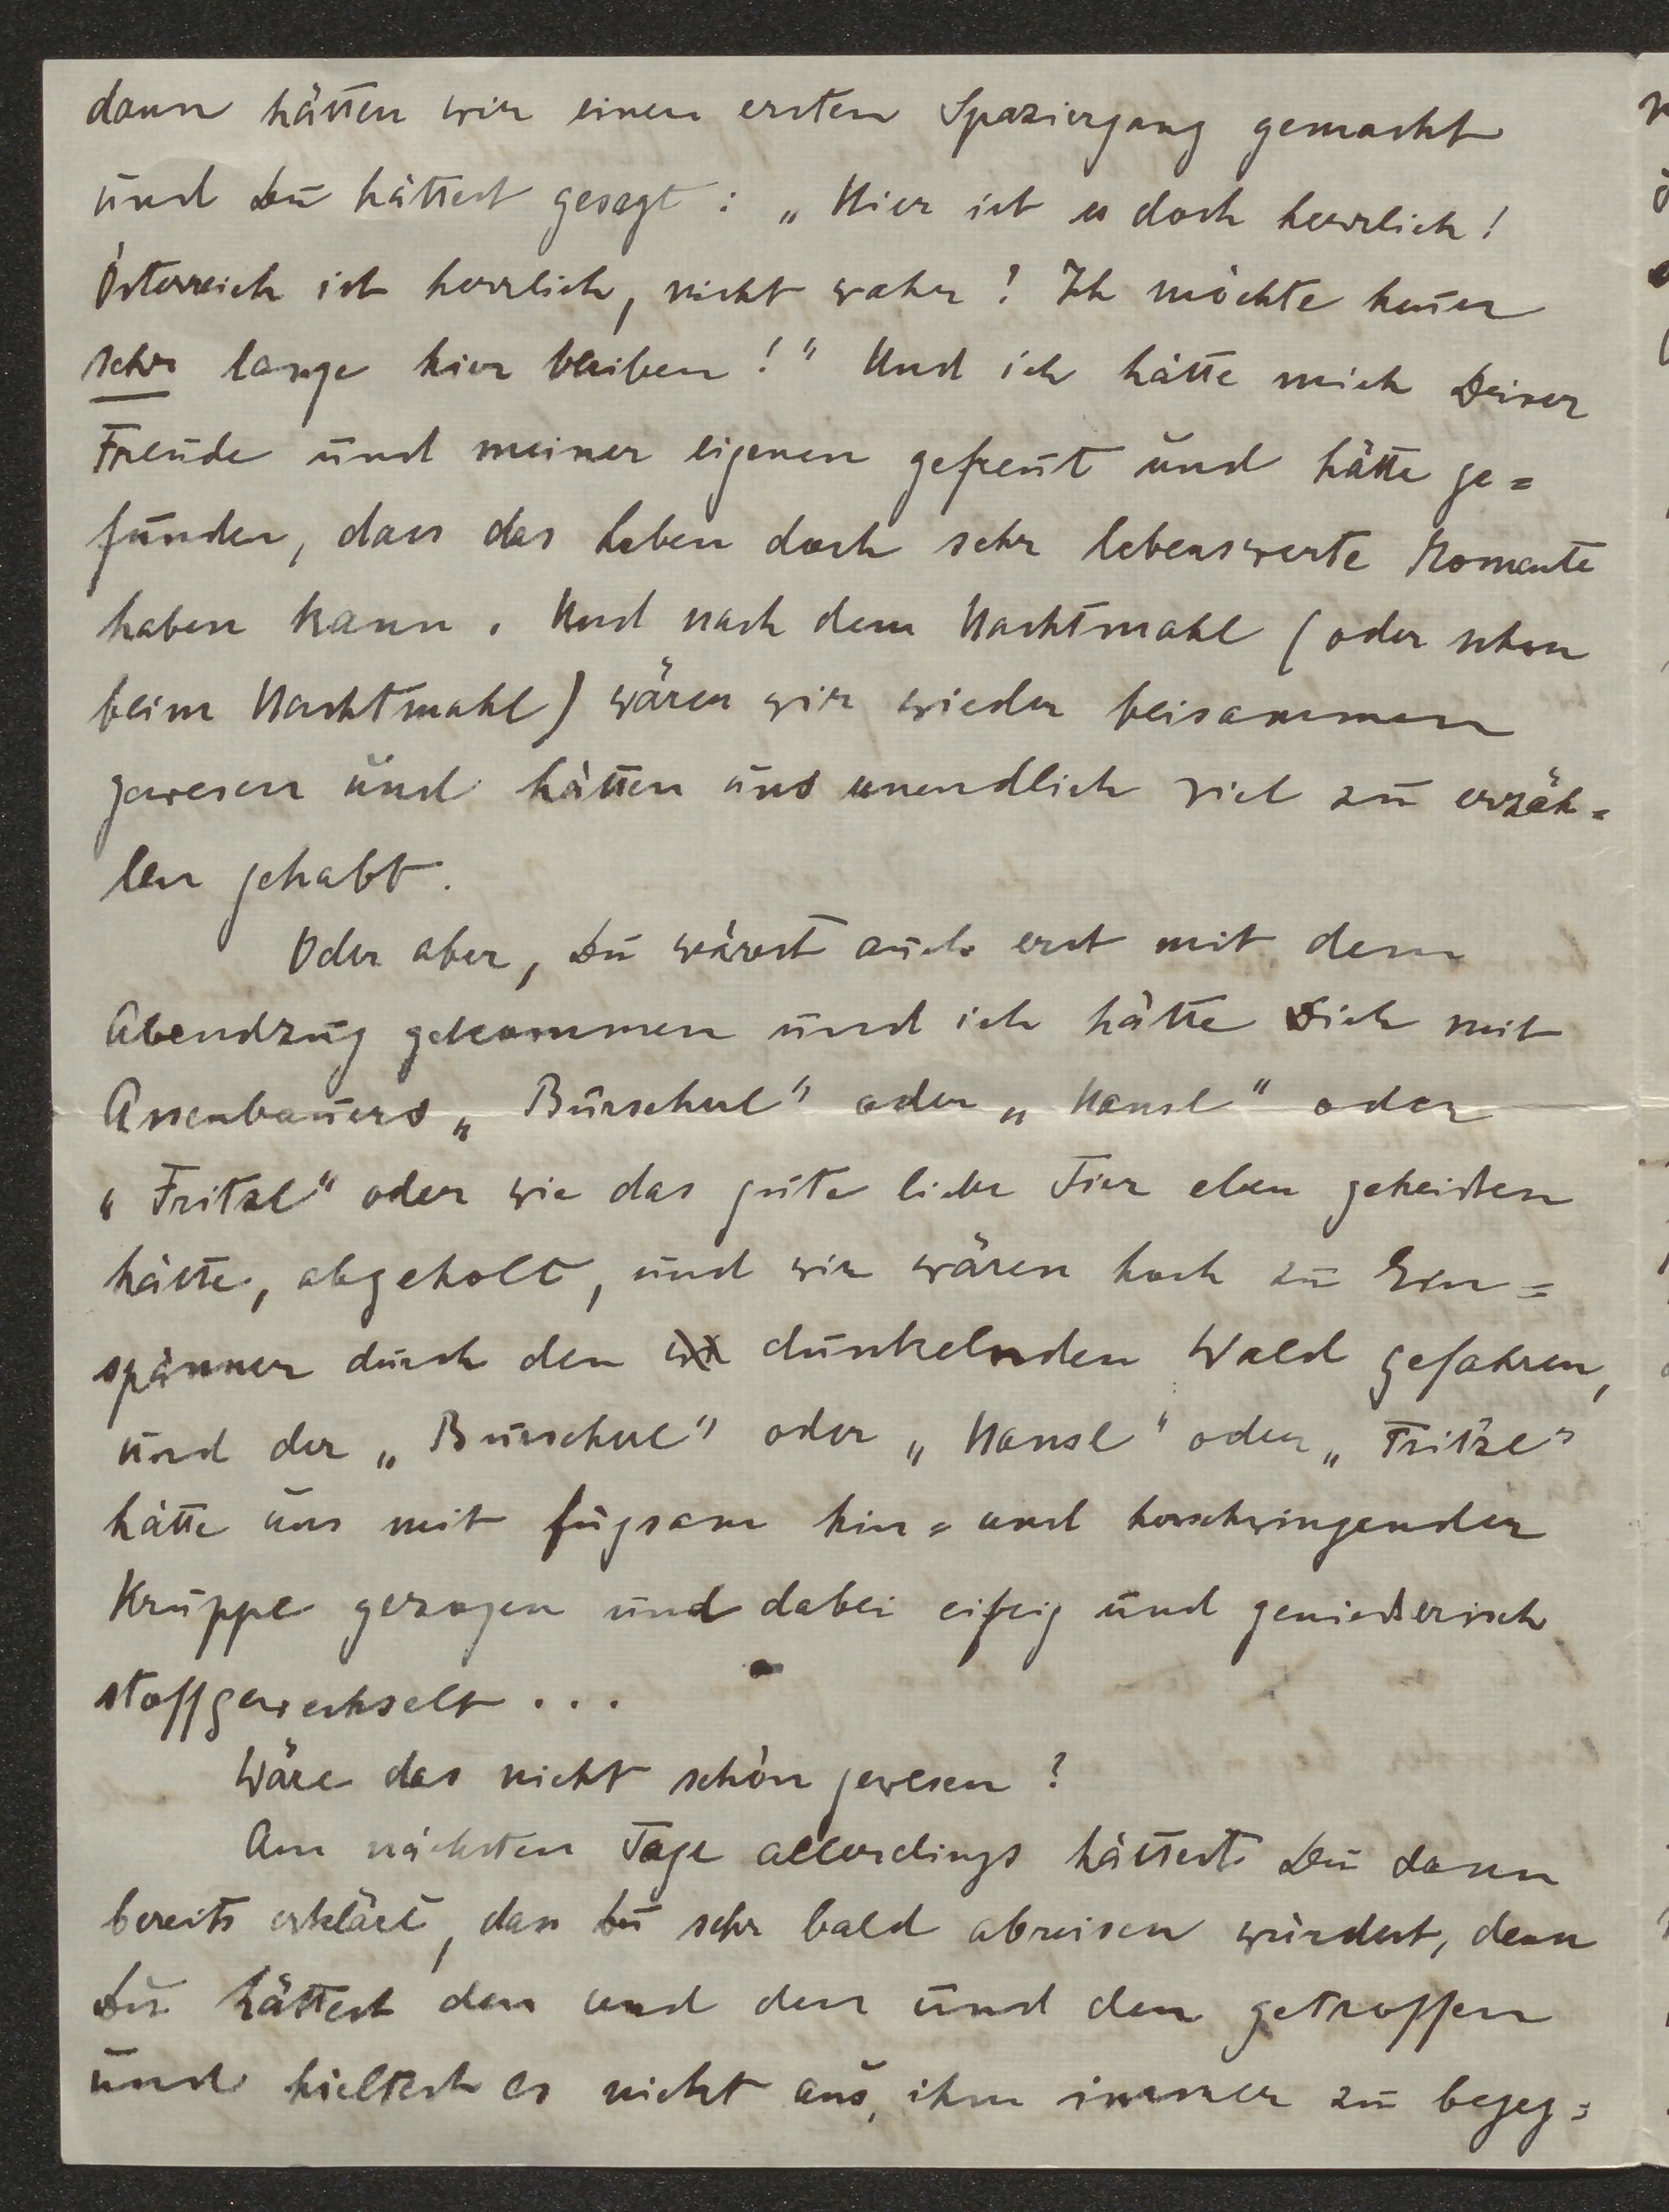 dann hätten wir einen ersten Spaziergang gemacht
und Du hättest gesagt: „Hier ist es doch herrlich!
Österreich ist herrlich, nicht wahr? Ich möchte heuer
sehr lange hier bleiben!" Und ich hätte mich Deiner
Freude und meiner eigenen gefreut und hätte ge=
funden, dass das Leben doch sehr lebenswerte Momente
haben kann. Und nach dem Nachtmahl (oder schon
beim Nachtmahl) wären wir wieder beisammen
gewesen und hätten uns unendlich viel zu erzäh=
len gehabt.
Oder aber, Du wärest auch erst mit dem
Abendzug gekommen und ich hätte Dich mit
Assenbauers „Burschul" oder „Hansl" oder
„Fritzl" oder wie das gute liebe Tier eben geheißen
hätte, abgeholt, und wir wären hoch zu Ein=
spänner durch den dunkelnden Wald gefahren,
und der „Burschul" oder „Hansl" oder „Fritzl"
hätte uns mit fügsam hin= und herschwingender
Kruppe gezogen und dabei eifrig und genießerisch
stoffgewechselt...
Wäre das nicht schön gewesen?
Am nächsten Tage allerdings hättest Du dann
bereits erklärt, dass Du sehr bald abreisen würdest, denn
Du hättest den und den und den getroffen
und hieltest es nicht aus, ihm immer zu begeg=